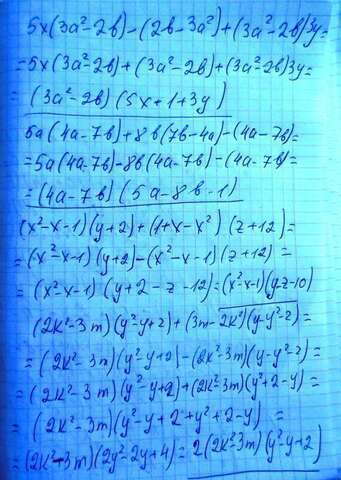 5x(3a²-2b)-(2b-3a²)+(3a²-2b)3y=
=5x(3a²-2b)+(3a²-2b)+(3a²-2b)3y=
=(3a²-2b)(5x+1+3y)
5a(4a-7b)+8b(7b-4a)-(4a-7b)=
=5a(4a-7b)-8b(4a-7b)-(4a-7b)=
=(4a-7b)(5a-8b-1)
(x²-x-1)(y+2)+(1+x-x²)(z+12)=
=(x²-x-1)(y+2)-(x²-x-1)(z+12)=
=(x²-x-1)(y+2-z-12)=(x²-x-1)(y-z-10)
(2k²-3m)(y²-y+2)+(3m-2k²)(y-y²-2)=
=(2k²-3m)(y²-y+2)-(2k²-3m)(y-y²-2)=
=(2k²-3m)(y²-y+2)+(2k²-3m)(y²+2-y)=
=(2k²-3m)(y²-y+2+y²+2-y)=
=(2k²-3m)(2y²-2y+4)=2(2k²-3m)(y²-y+2)